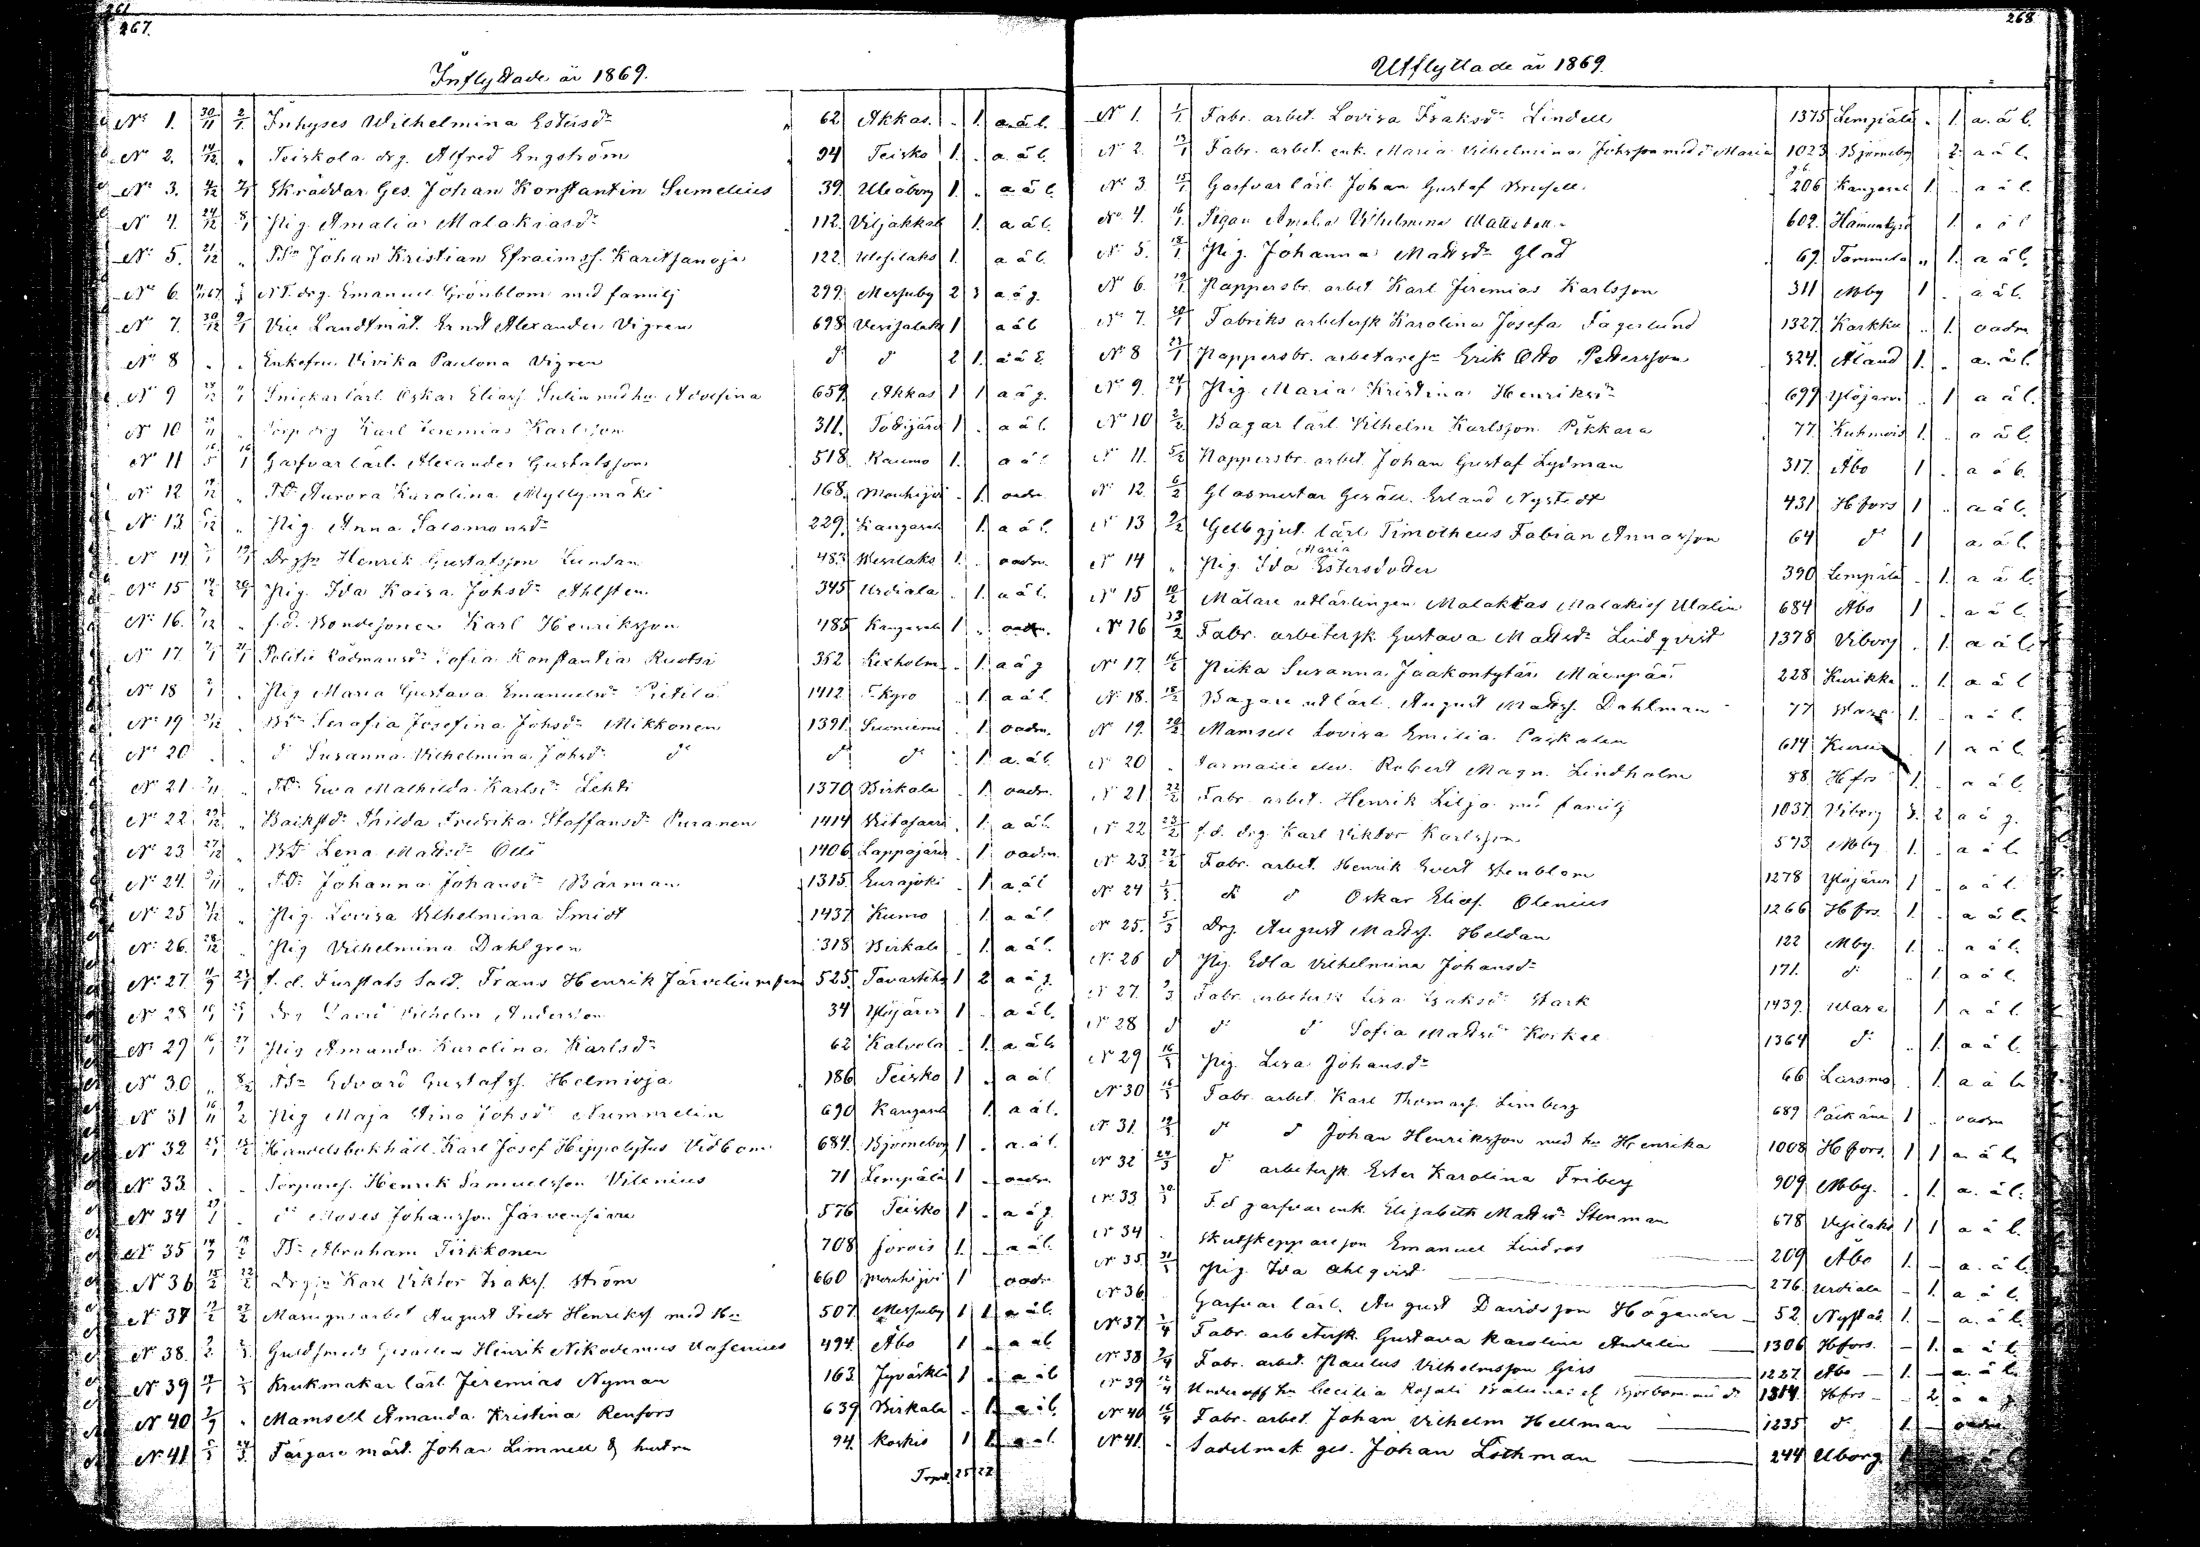 261
267.
Inflyttade år 1869.
N° 1. 30/11 2/1. Inhyses Wilhelmina Estersdr 62 Akkas. . 1. a.ä l.
N° 2. 14/12 „ Teiskola drg. Alfred Engström 94 Teisko 1. . a. ä l.
N° 3. Skräddar Ges. Johan Konstantin Sumelius 39. Uleåborg 1. „ a ä l.
N° 4. 24/12 8/1 Pig. Amalia Malakiasdr 112. Viljakkala 1. a ä l.
N° 5. 21/12 „ Johan Kristian Efraimss. Karitsanoja 122. Wesilaks 1. a ä l.
N° 6. drg. Emanuel Grönblom med familj 299. Messuby 2 3 a ä g.
N° 7. 30/12 9/1 Vice Landtmät. Ernst Alexander Vigren 698 Vesijalaks 1 a ä l
N° 8 . . Enkefru Vivika Paulona Vigren d° d° 2 1. a ä l.
N° 9 Snickar lärl. Oskar Eliass. Sulin med hu Adolfina 659. Akkas 1 1 a ä g.
N° 10 Torp drg Karl Jeremias Karlsson 311. 1 . a ä l.
N° 11 Garfvar lärl. Alexander Gustafsson 518 Raumo 1. a ä l
N° 12 „ Aurora Karolina Myllymäki 168. Mouhijvi . 1. oadm.
N° 13 „ Pig. Anna Salomonsdr 229. Kangasala 1. a ä l.
N° 14 Henrik Gustafsson Lundan 483. Wesilaks 1. . oadm.
N° 15 Pig. Ida Kaisa Johsdr Ahlsten 345 Urdiala . 1. a ä l.
N° 16. „ f.d. Bondesonen Karl Henriksson 485 Kangasala 1 „ oadm.
N° 17 Politie Rådmansdr Sofia Konstantia Ruotsi 352 Kexholm . 1. a ä g
N° 18 Pig Maria Gustava Emanuelsdr Pietilä 1412 T. kyro . 1. a ä l.
N° 19 Serafia Josefina Johsdr Mikkonen 1391. Suoniemi . 1. oadm.
N° 20 . . d° Susanna Vilhelmina Johsdr d° d° d° . 1 a. ä l.
N° 21 „ Ewa Mathilda Karlsdr Lehti 1370 Birkala . 1 oadm.
N° 22 „ Backstdr Hilda Fredrika Staffansdr Puranen 1414 Viitasaari . 1. a ä l.
N° 23 27/12 „ Lena Mattsdr Olli 1406 Lappajärvi . 1 oadm.
N° 24. „ Johanna Johansdr Bärman 1315. Eurajoki . 1 a ä l
N° 25 „ Pig. Lovisa Vilhelmina Smidt 1437 Kumo . 1. a ä l
N° 26. 28/12 „ Pig Vilhelmina Dahlgren 318 Birkala . 1. a ä l.
N° 27. f. d. Furstats Sold. Frans Henrik Järvelin 525. Tavastehus 1 2 a ä g.
N° 28 drg David Vilhelm Andersson 34 Ylöjärvi 1 . a ä l.
N° 29 Pig Amanda Karolina Karlsdr 62 Kalvola . 1. a ä l.
N° 30 „ Edvard Gustafss. Helmioja 186 Teisko 1 . a ä l
N° 31 Pig Maja Stina Johsdr Nummelin 690 Kangasala 1. a ä l.
N° 32 Handelsbokhåll. Karl Josef Hippolytus Vidbom 684. Björneborg 1 . a. ä l.
N° 33 . . Torparess. Henrik Samuelsson Vilenius 71 Lempälä 1 . oadm.
N° 34 d° Moses Johansson Järvensivu 576 Teisko 1 . a ä g.
N° 35 Abraham Tirkkonen 708 Jorois 1. . a ä l.
N° 36 Karl Viktor Isakss. Ström 660 Mouhijvi 1 oadm.
N° 37 August Fredr Henrikss. med Hu 507. Messuby 1 1. a ä l.
N° 38. Guldsmeds Gesällen Henrik Nikodemus Uasenius 494. Åbo 1 . a ä l
N° 39 Krukmakar lärl. Jeremias Nyman 163 Jyväskla 1 . a ä l
N° 40 „ Mamsell Amanda Kristina Renfors 639 Birkala . 1. a ä l.
N° 41 Färgare mäst. Johan Limnell & hustru 94. Koskis 1 1. a ä l.
Trpt. 25 22
268
Utflyttade år 1869.
N° 1. Fabr. arbet. Lovisa Isaksdr Lindell 1375 Lempäälä „ 1. a. ä l.
N° 2. Fabr. arbet. enk. Maria Vilhelmina Johsson med d. Maria 1023 Björneborg 2. a ä l.
N° 3. Garfvar lärl. Johan Gustaf Brusell 206 Kangasal 1. . a ä l.
N° 4. Pigan Amalia Vilhelmina 602. Hämeenkyrö 1. . a ä l
N° 5. Pig. Johanna Mattsdr Glad 69. Tammela „ 1. a ä l.
N° 6. Pappersbr. arbet Karl Jeremias Karlsson 311 Mby 1 . a ä l.
N° 7. Fabriks arbetersk Karolina Josefa Fagerlund 1327. Karkku . 1. oadm
N° 8 Pappersbr. arbetaress Erik Otto Pettersson 324. Åland 1. . a. ä l.
N° 9. Pig. Maria Kristina Henriksdr 699 Ylöjärvi 1 a ä l.
N° 10 Bagar lärl. Vilhelm Karlsson Pikkara 77. Kuhmois 1. . a ä l.
N° 11. Pappersbr. arbet. Johan Gustaf Lydman 317. Åbo 1 . a ä l.
N° 12. Glasmestar Gesäll. Erland Nystedt 431 Hfors 1 . a ä l.
N° 13 Gelbgjut. lärl. Timotheus Fabian Annasson 64 d° 1 a. ä l.
N° 14 „ Pig. Ida Maria Estersdotter 390 Lempälä . 1. a ä l.
N° 15 Målare utlärlingen Malakias Malakiss Ulalin 684 Åbo 1 . a ä l.
N° 16 Fabr. arbetersk Gustava Mattsdr Lindqvist 1378 Viborg . 1. a ä l.
N° 17. Piika Susanna Jaakontytär Mäenpää 228 Kurikka . 1. a ä l
N° 18. Bagare utlärl. August Matss. Dahlman 77 Wasa 1. . a ä l.
N° 19. Mamsell Lovisa Emilia 614 Kuru . 1 a ä l.
N° 20 „ Farmacie elev. Robert Magn. Lindholm 88 Hfrs 1. . a ä l.
N° 21 Fabr. arbet. Henrik Lilja med familj 1037. Viborg 3. 2 a ä g.
N° 22 f. d. drg. Karl Viktor Karlsson 573 Mby 1. . a ä l.
N° 23. 27/2 Fabr. arbet. Henrik Evert Stenblom 1278 Ylöjärvi 1 . a ä l.
N° 24 d° d° Oskar Eliass. Olenius 1266 Hfrs. 1. . a ä l.
N° 25. Drg. August Mattss. Heldan 122 Mby. 1. . a ä l.
N° 26 d° Pig. Edla Vilhelmina Johansdr 171. d° . 1 a ä l.
N° 27. Fabr arbetersk Lisa Isaksdr Stark 1439. Wasa 1 a ä l.
N° 28 d° d° d° Sofia Mattsdr Koskel 1364 d° . 1. a ä l.
N° 29 Pig. Lisa Johansdr 66 Larsmo . 1. a ä l.
N° 30 Fabr. arbet. Karl Thomass. Limberg 689 Päikäne 1 . oadm
N° 31. d° d° Johan Henriksson med hu Henrika 1008 Hfors. 1 1 a. ä l.
N° 32 d° arbetersk. Ester Karolina Friberg 909 Mby. . 1. a. ä l.
N° 33 F.d garfvar enk. Elisabeth Mattsdr Stenman 678 Vesilaks 1 1 a ä l.
N° 34 . Skutskepparsson Emanuel Lindros 209 Åbo 1. . a. ä l.
N° 35. Pig. Ida Ahlqvist 276. Urdiala – 1. a ä l.
N° 36 . Garfvar lärl. August Davidsson Högander 52. Nystad. 1. – a. ä l.
N° 37 Fabr. arbetersk. Gustava Karolina Andelin 1306 Hfors. – 1. a ä l.
N° 38 Fabr. arbet. Paulus Vilhelmsson Girs 1227. Åbo – 1. – a. ä l.
N° 39 Underoff hu Cecilia Rosali 1314. Hfrs – 2. a ä g.
N° 40 Fabr. arbet. Johan Vilhelm Hellman 1235 d° 1. – oadm
N° 41. . Sadelmak ges. Johan Löthman 244 Uborg. 1.